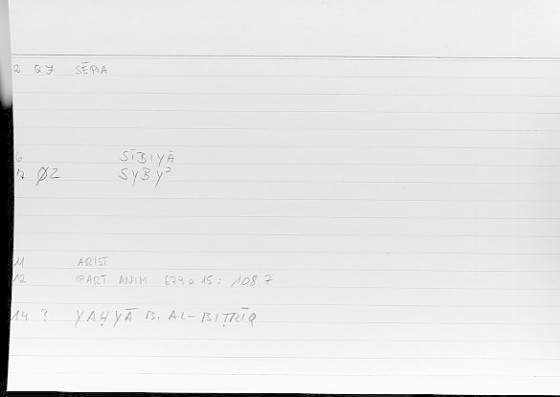 2 &7 SĒPIA
6 SĪBIYĀ
7 ØZ SYBYʾ
11 ARIST
12 PART ANIM 679a 15: 108 7
14 ? YAḤYĀ B. AL-BIṬRĪQ